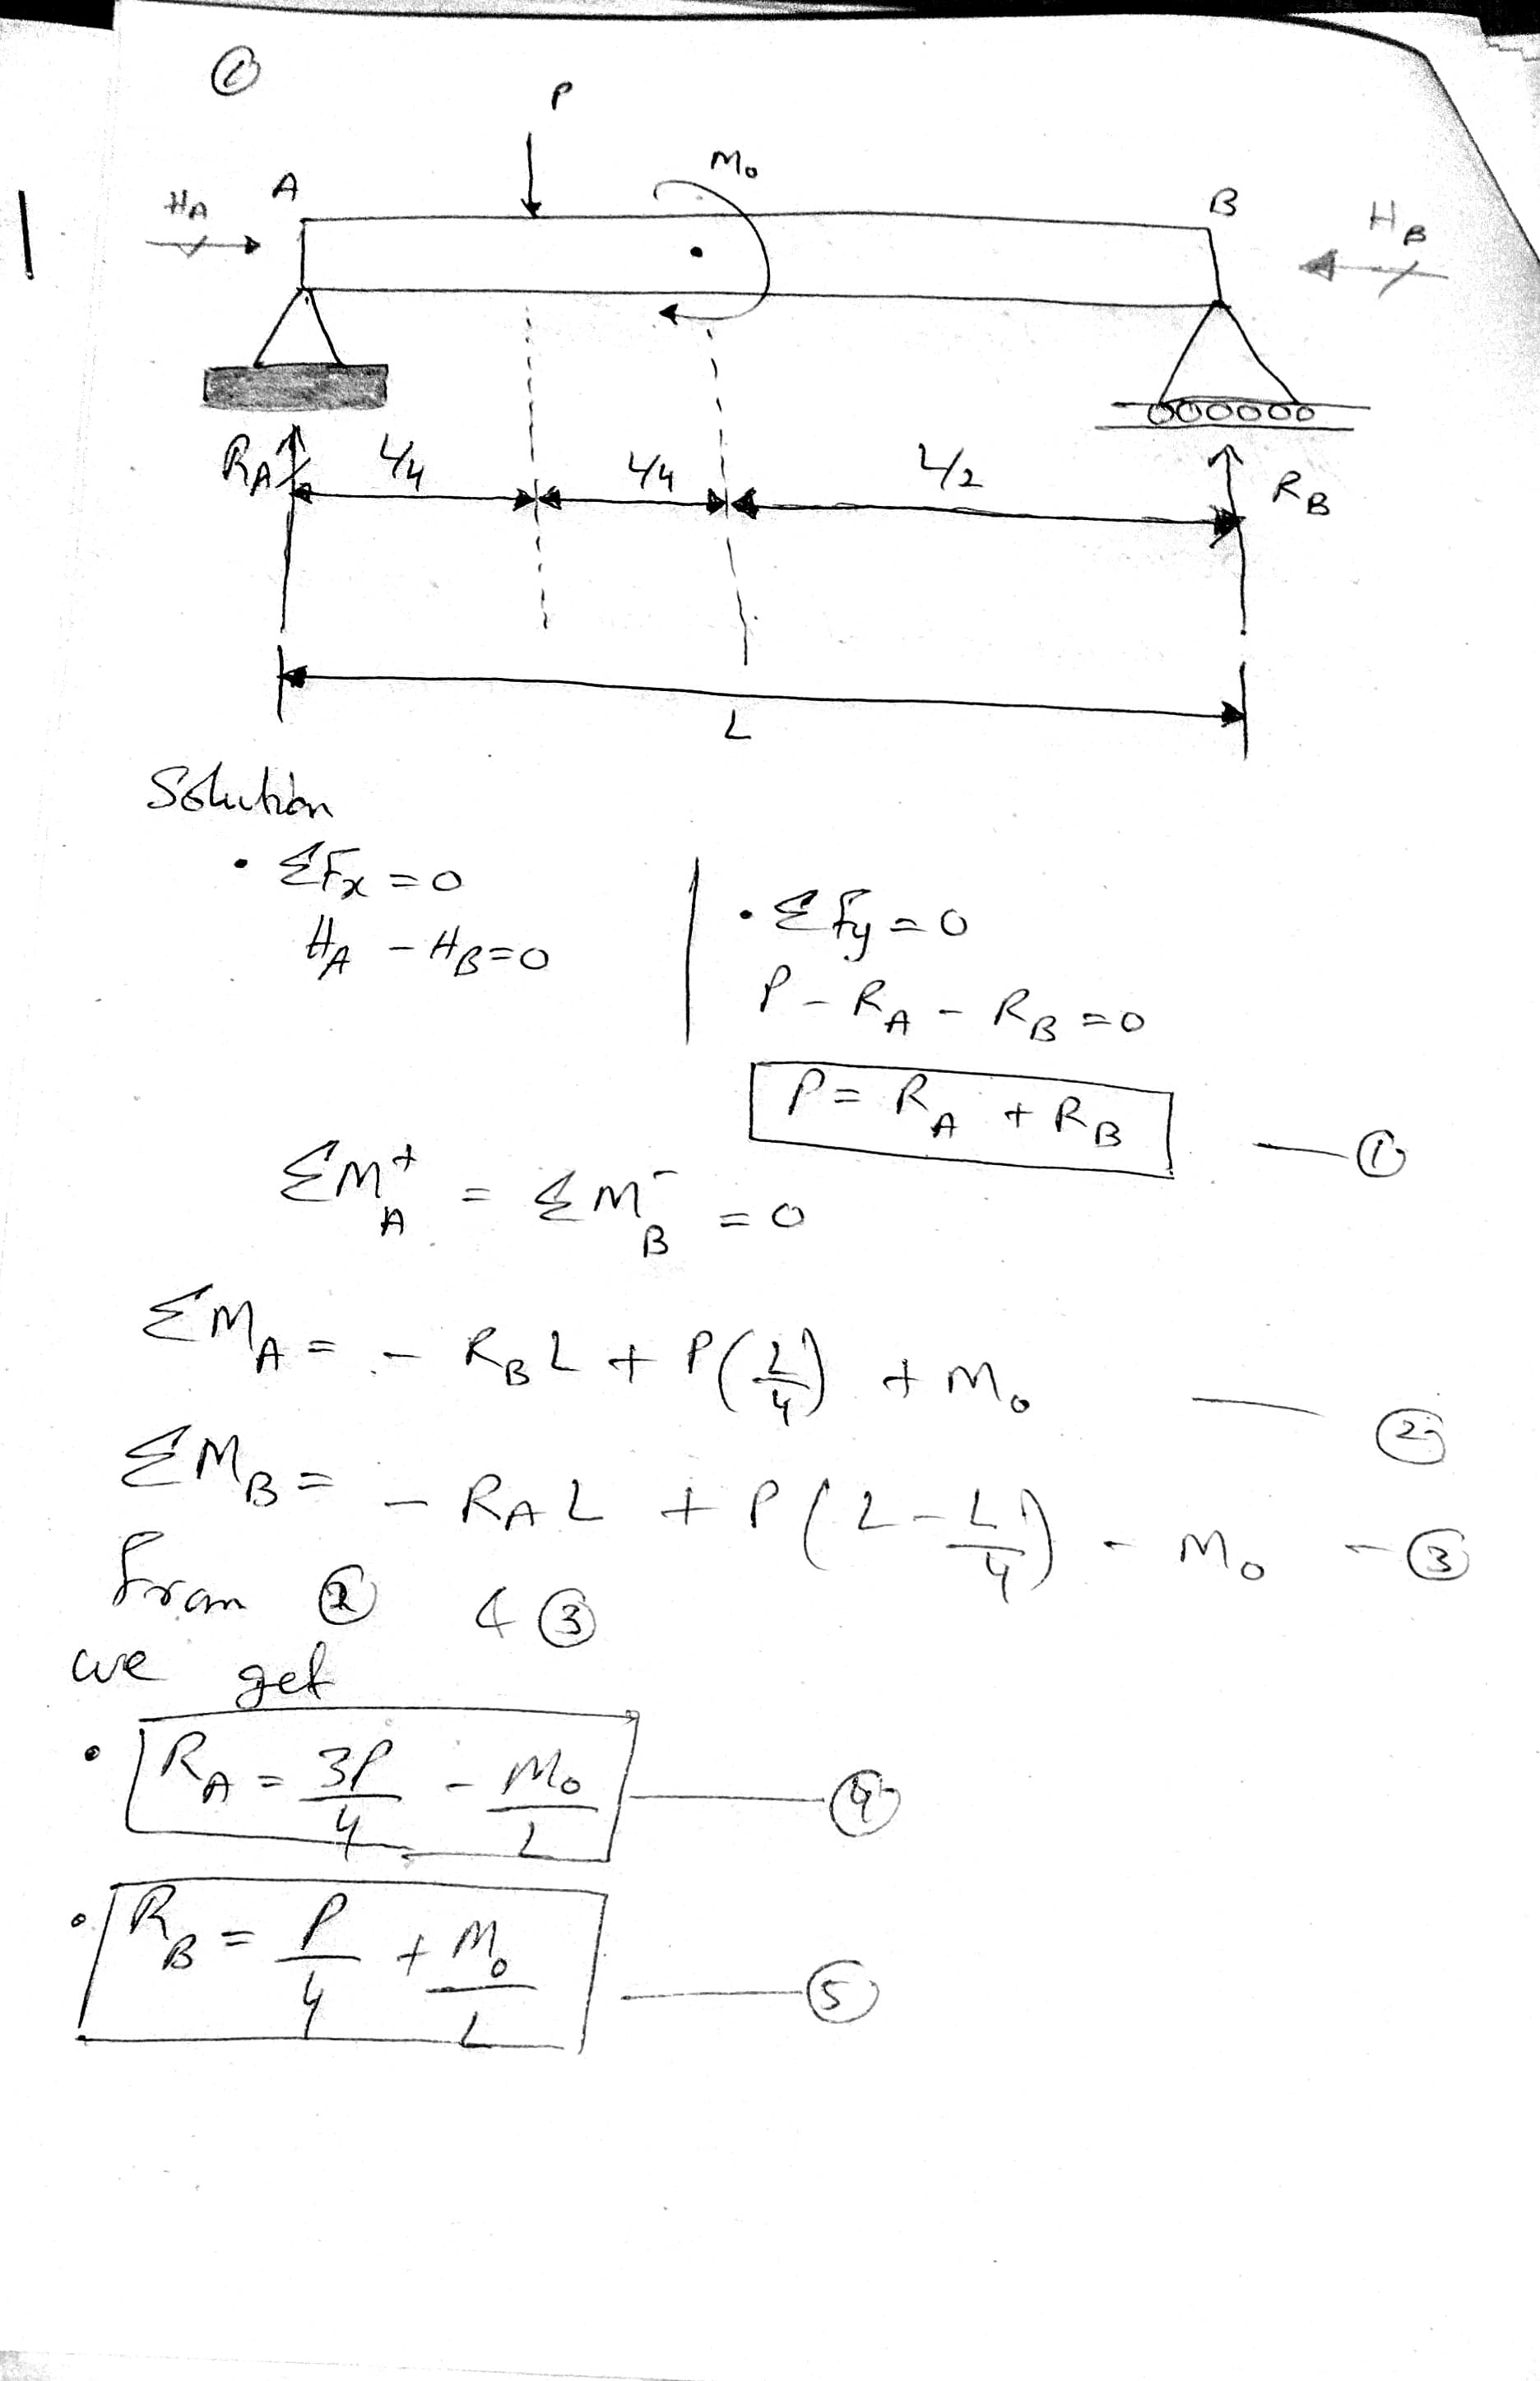 ①
P
M₀
A
B
H_A
H_B
R_A
L/4
L/4
L/2
R_B
L
Solution
• ΣFx = 0
H_A - H_B = 0
• ΣFy = 0
P - R_A - R_B = 0
P = R_A + R_B — ①
ΣM⁺_A = ΣM⁻_B = 0
ΣM_A = - R_B L + P(L/4) + M₀ — ②
ΣM_B = - R_A L + P(L - L/4) - M₀ - ③
from ② & ③
we get
• R_A = 3P/4 - M₀/L — ④
• R_B = P/4 + M₀/L — ⑤